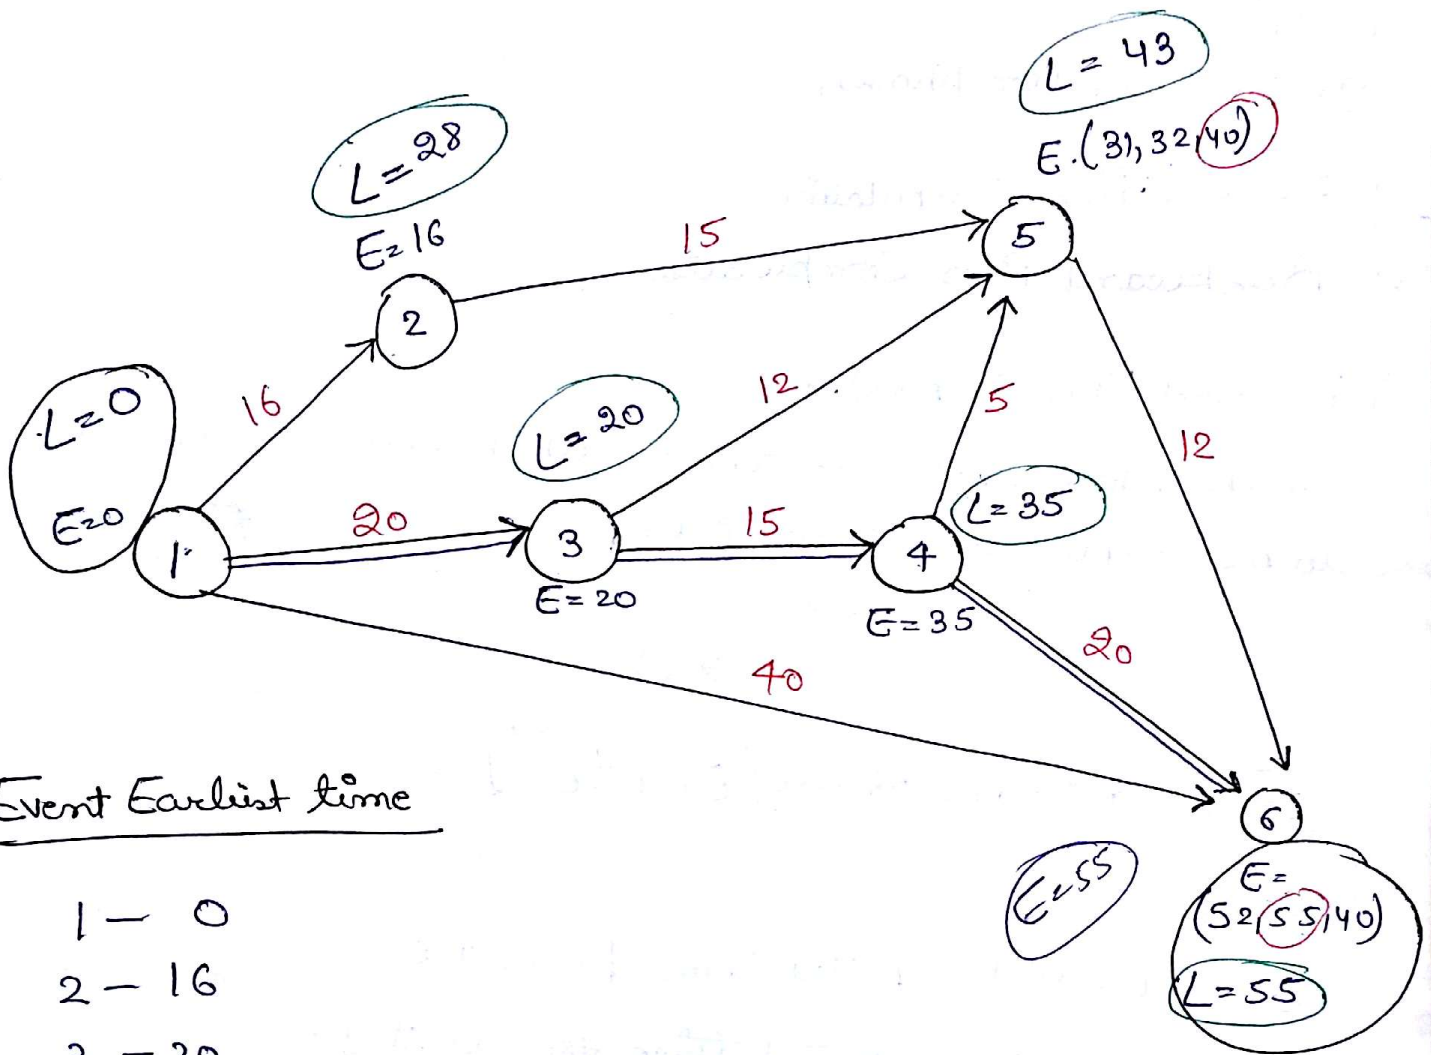 L = 43
E.(31, 32, 40)
L = 28
E = 16
15
5
2
16
12
5
12
L = 0
L = 20
E = 0
20
15
L = 35
1
3
4
E = 20
E = 35
20
40
6
Event Earliest time
E = 55
E =
(52, 55, 40)
L = 55
1 — 0
2 — 16
3 — 20